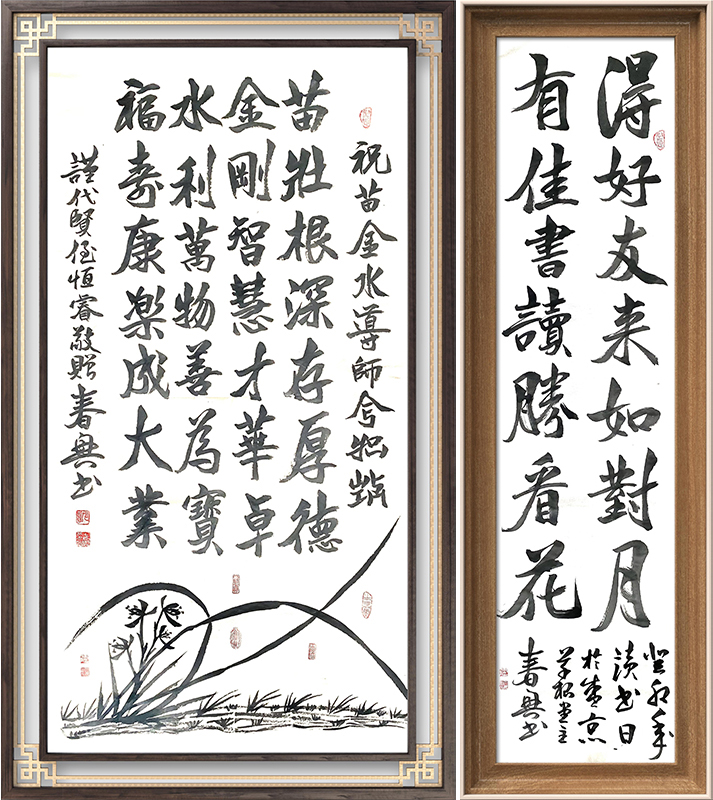 祝苗金水導師
苗壯根深存厚德
金剛智慧才華卓
水利萬物善為寶
福壽康樂成大業
謹代賢侄恒睿敬贈春书
得好友来如對月
有佳書讀勝看花
癸卯年
读书日
於京
堂主
春书